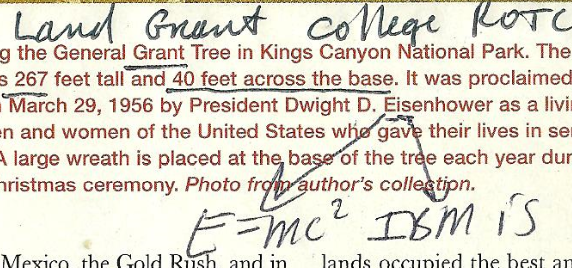 Land Grant college ROTC
ng the General Grant Tree in Kings Canyon National Park. The
s 267 feet tall and 40 feet across the base. It was proclaimed
March 29, 1956 by President Dwight D. Eisenhower as a livi
en and women of the United States who gave their lives in ser
A large wreath is placed at the base of the tree each year dur
hristmas ceremony. Photo from author's collection.
E=mc² IBM is
Mexico, the Gold Rush, and in lands occupied the best an